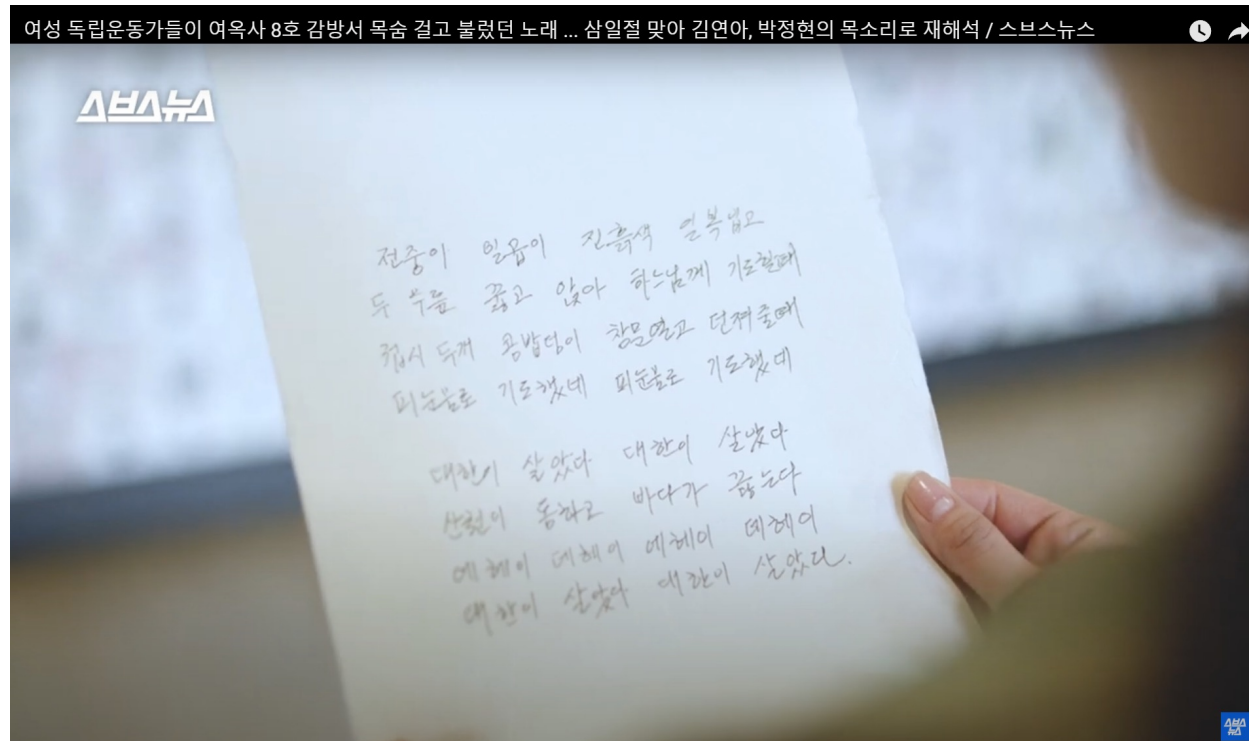 여성 독립운동가들이 여옥사 8호 감방서 목숨 걸고 불렀던 노래 ... 삼일절 맞아 김연아, 박정현의 목소리로 재해석 / 스브스뉴스
스브스뉴스
전중이 일곱이 진흙색 일복입고
두 무릎 꿇고 앉아 하느님께 기도할때
접시 두개 콩밥덩이 창문열고 던져줄때
피눈물로 기도했네 피눈물로 기도했네
대한이 살았다 대한이 살았다
산천이 동하고 바다가 끓는다
에헤이 데헤이 에헤이 데헤이
대한이 살았다 대한이 살았다.
스브스
뉴스